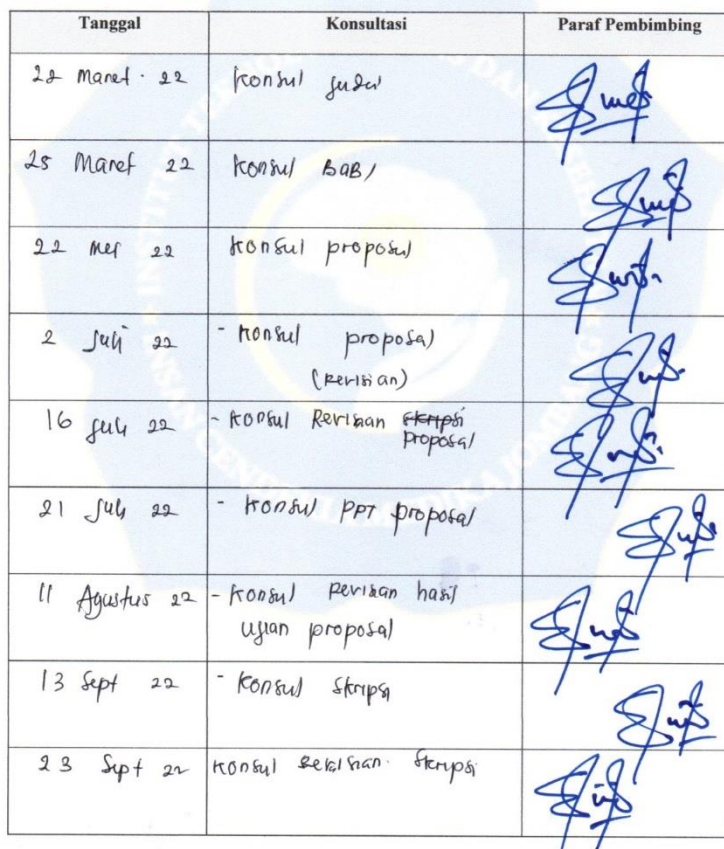 Tanggal Konsultasi Paraf Pembimbing
22 Maret . 22 Konsul Judul
25 Maret 22 Konsul BAB 1
22 Mei 22 Konsul proposal
2 Juli 22 - Konsul proposal
(Revisian)
16 Juli 22 - Konsul Revisian skripsi
proposal
21 Juli 22 - Konsul PPT proposal
11 Agustus 22 - Konsul Revisian hasil
ujian proposal
13 Sept 22 - Konsul Skripsi
23 Sept 22 Konsul Revisian Skripsi